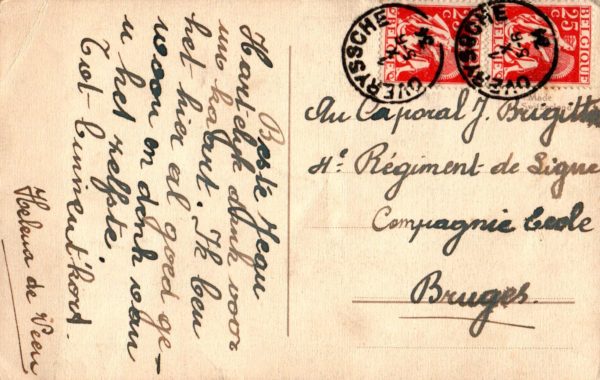 Beste
Hartelyk dank voor
uw kaart. Ik ben
het hier al goed ge-
woon en denk van
u het zelfste.
Tot binnenkort.
Helena de
OVERYSSCHE
OVERYSSCHE
25 C
BELGIQUE
25 C
BELGIQUE
Made
Au Caporal J.
4e Régiment de Ligne
Compagnie Ecole
Bruges.